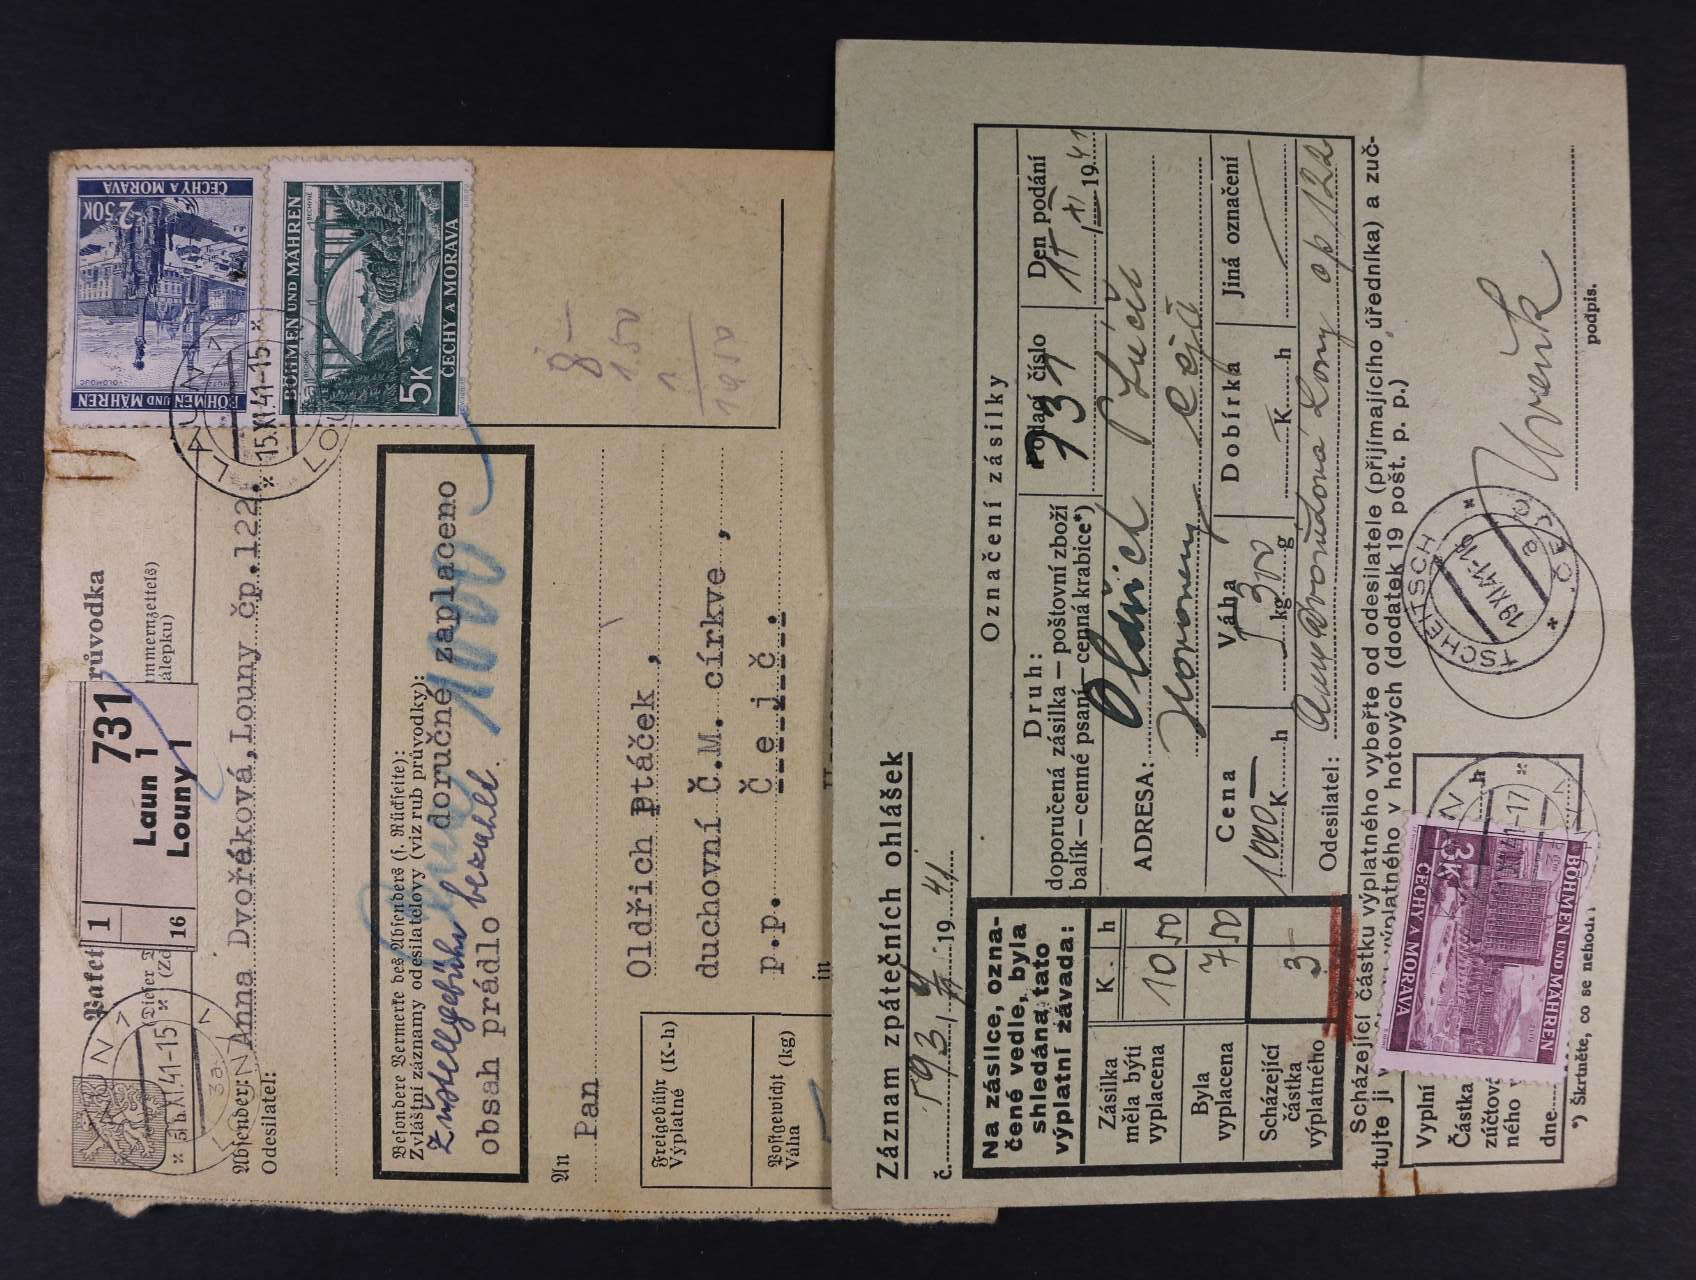 2·50K
ČECHY A MORAVA
BÖHMEN UND MÄHREN
BÖHMEN UND MÄHREN
ČECHY A MORAVA
5K
LAUN
15.XI.41-15
Paket
průvodka
1
731
Laun 1
Louny 1
16
15.XI.41-15
Absender:
Odesílatel:
Anna Dvořáková, Louny čp. 122.
Besondere Vermerke des Absenders (s. Rückseite):
Zvláštní záznamy odesilatelovy (viz rub průvodky):
Zustellgebühr bezahlt.
doručné zaplaceno
obsah prádlo
1000
8 –
1.50
1
10.50
An
Pan
Oldřich Ptáček,
duchovní Č.M. církve,
p.p. Č e j č .
in
Freigebühr (K-h)
Výplatné
Postgewicht (kg)
Váha
Záznam zpátečních ohlášek
č. 1941
Označení zásilky
Druh:
doporučená zásilka — poštovní zboží
balík — cenné psaní — cenná krabice*)
Podací číslo
731
Den podání
15/XI 1941
ADRESA:
Oldřich
Cejč
Cena
1000 K — h
Váha
1 kg 300 g
Dobírka
K h
Jiná označení
Odesilatel:
Anna Dvořáková Louny čp 122
Na zásilce, ozna-
čené vedle, byla
shledána tato
výplatní závada:
K h
Zásilka
měla býti
vyplacena
10 50
Byla
vyplacena
7 50
Scházející
částka
výplatného
3 –
Scházející částku výplatného vybeřte od odesilatele (přijímajícího úředníka) a zuč-
tujte ji v hotových (dodatek 19 pošt. p. p.)
Výplní
Částka
zúčtová
ného v
dne
h
BÖHMEN UND MÄHREN
ČECHY A MORAVA
3K
TSCHEITSCH
ČEJČ
19.XI.41-16
podpis.
*) Škrtněte, co se nehodí